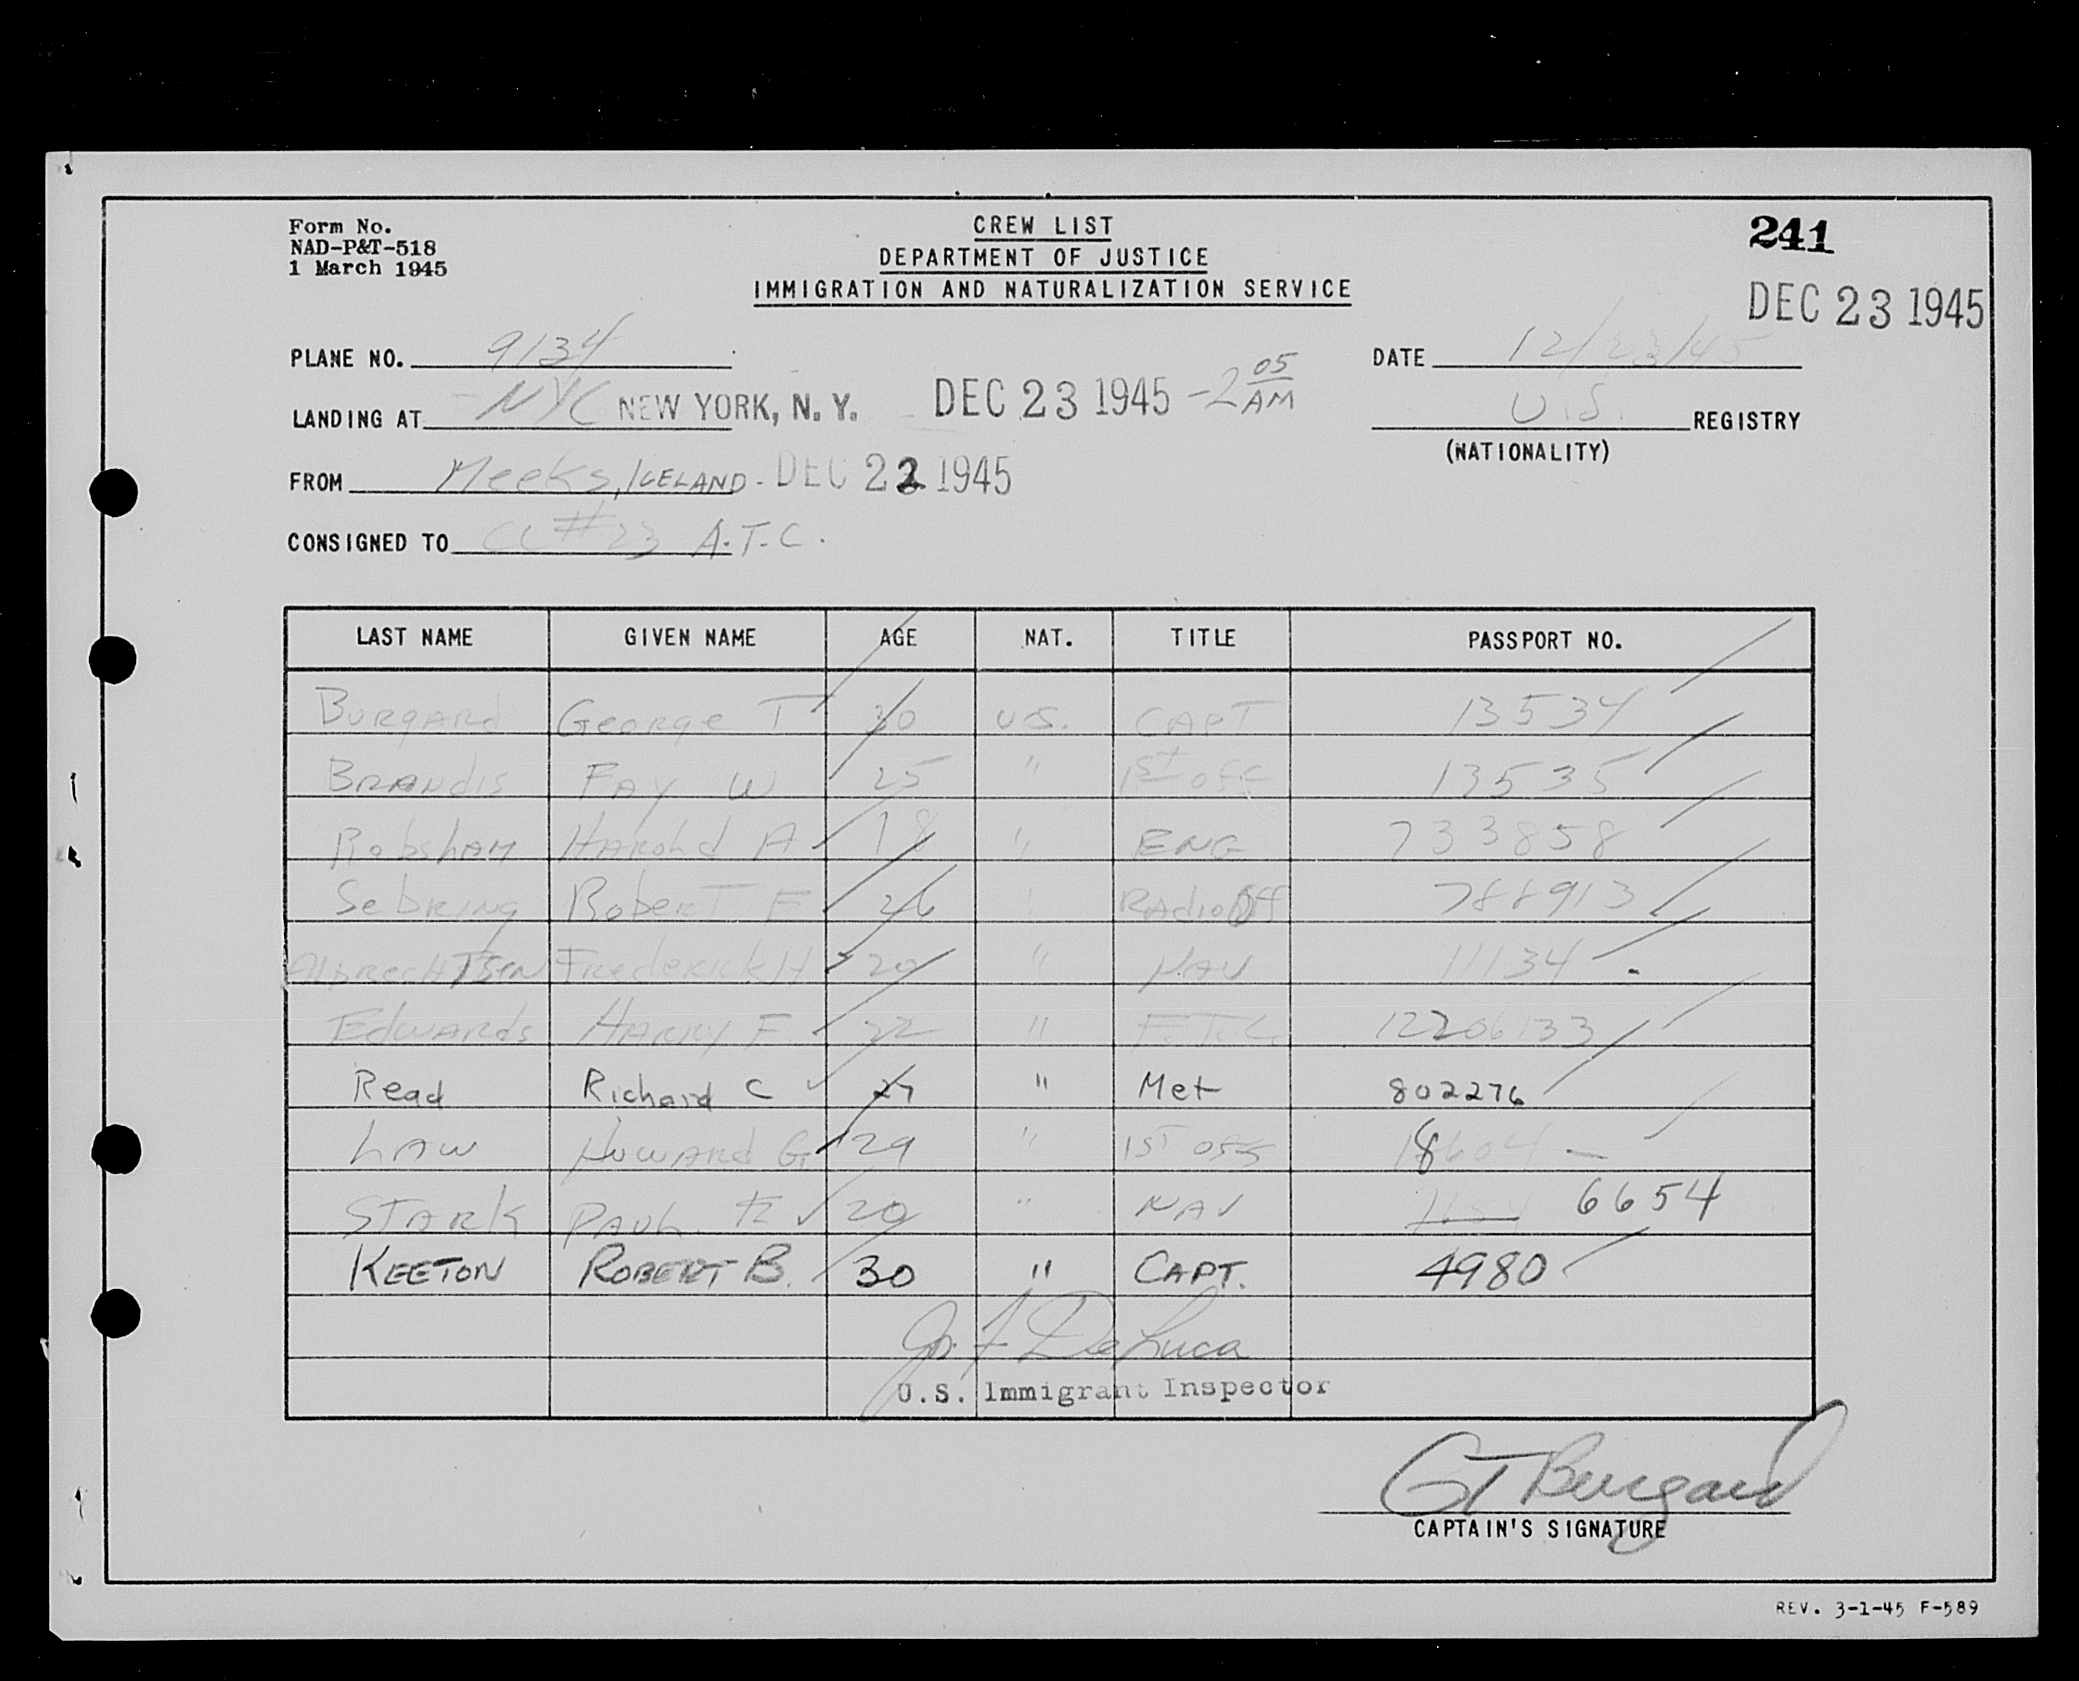 Form No.
NAD-P&T-518
1 March 1945
CREW LIST
DEPARTMENT OF JUSTICE
IMMIGRATION AND NATURALIZATION SERVICE
241
DEC 23 1945
PLANE NO. 9134
DATE 12/23/45
LANDING AT NYC NEW YORK, N. Y. DEC 23 1945 - 2 05 AM
U.S. REGISTRY
(NATIONALITY)
FROM Meeks, ICELAND - DEC 22 1945
CONSIGNED TO CC #23 A.T.C.
LAST NAME GIVEN NAME AGE NAT. TITLE PASSPORT NO.
Burgard George T 30 U.S. CAPT 13534
Brandis Fay W 25 " 1st Off 13535
Robsham Harold A 18 " ENG 733858
Sebring Robert F 26 " Radio Off 788913
Albrechtsen Frederick H " NAV 11134
Edwards Harry F 22 " F.T.C. 12206133
Read Richard C 27 " Met 802276
Law Howard G 29 " 1st Off 18604
Stark Paul " NAV 6654
KEETON ROBERT B. 30 " CAPT. 4980
Jn. F DeLuca
U.S. Immigrant Inspector
GT Burgard
CAPTAIN'S SIGNATURE
REV. 3-1-45 F-589